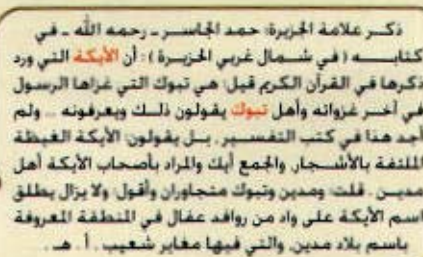 ذكر علامة الجزيرة: حمد الجاسر ـ رحمه الله ـ في
كتابه ( في شمال غربي الجزيرة ) : أن الأيكة التي ورد
ذكرها في القرآن الكريم قيل: هي تبوك التي غزاها الرسول
في آخر غزواته وأهل تبوك يقولون ذلك ويعرفونه .. ولم
أجد هذا في كتب التفسير . بل يقولون: الأيكة الغيظة
الملتفة بالأشجار، والجمع أيك والمراد بأصحاب الأيكة أهل
مدين . قلت: ومدين وتبوك متجاوران وأقول: ولا يزال يطلق
اسم الأيكة على واد من روافد عفال في المنطقة المعروفة
باسم بلاد مدين، والتي فيها مغاير شعيب . أ . هـ .